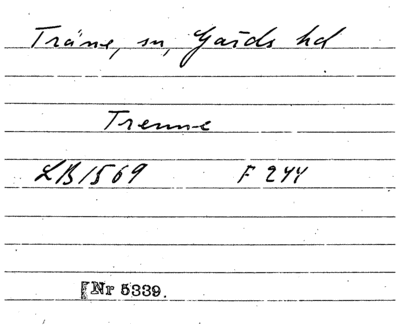 Träne, sn, Gärds hd
Trenne
LB 1569 F 244
[Nr 5339.